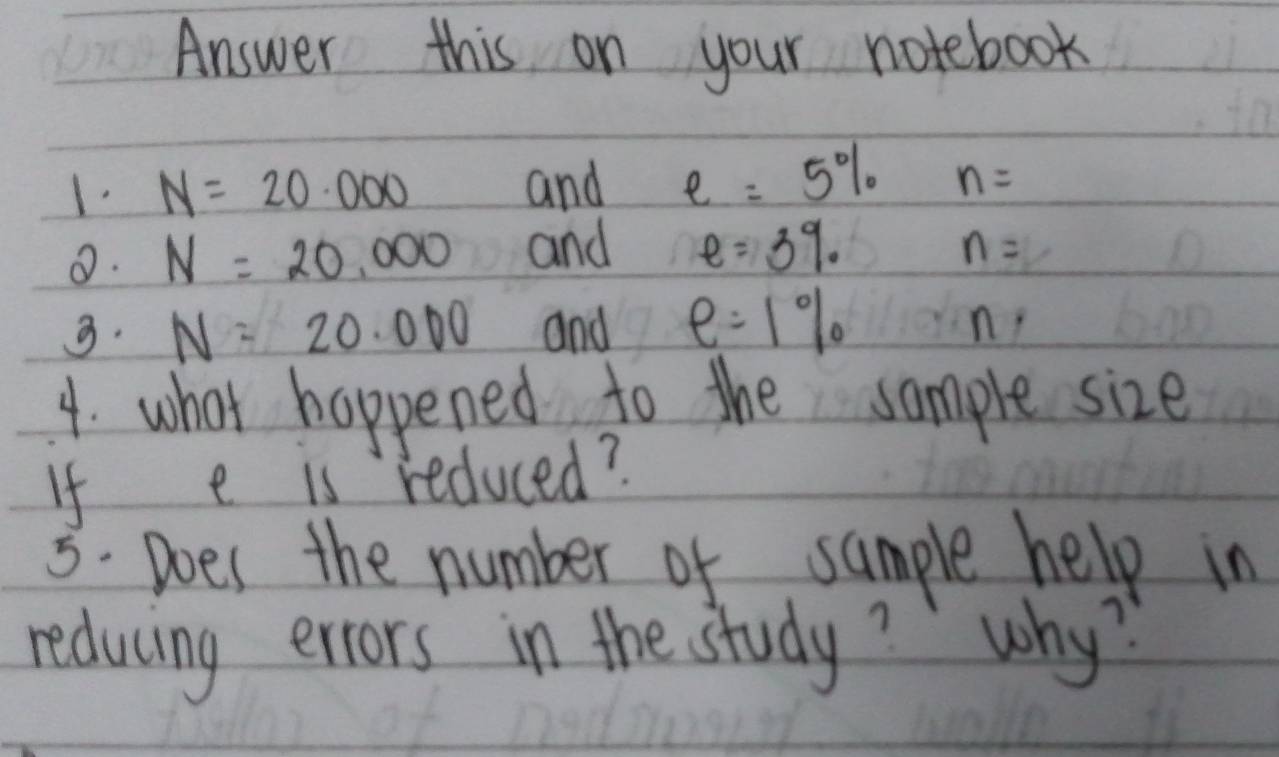 Answer this on your notebook
1. N = 20.000 and e = 5% n =
2. N = 20.000 and e = 3% n =
3. N = 20.000 and e = 1% n =
4. what happened to the sample size
if e is reduced?
5. Does the number of sample help in
reducing errors in the study? why?